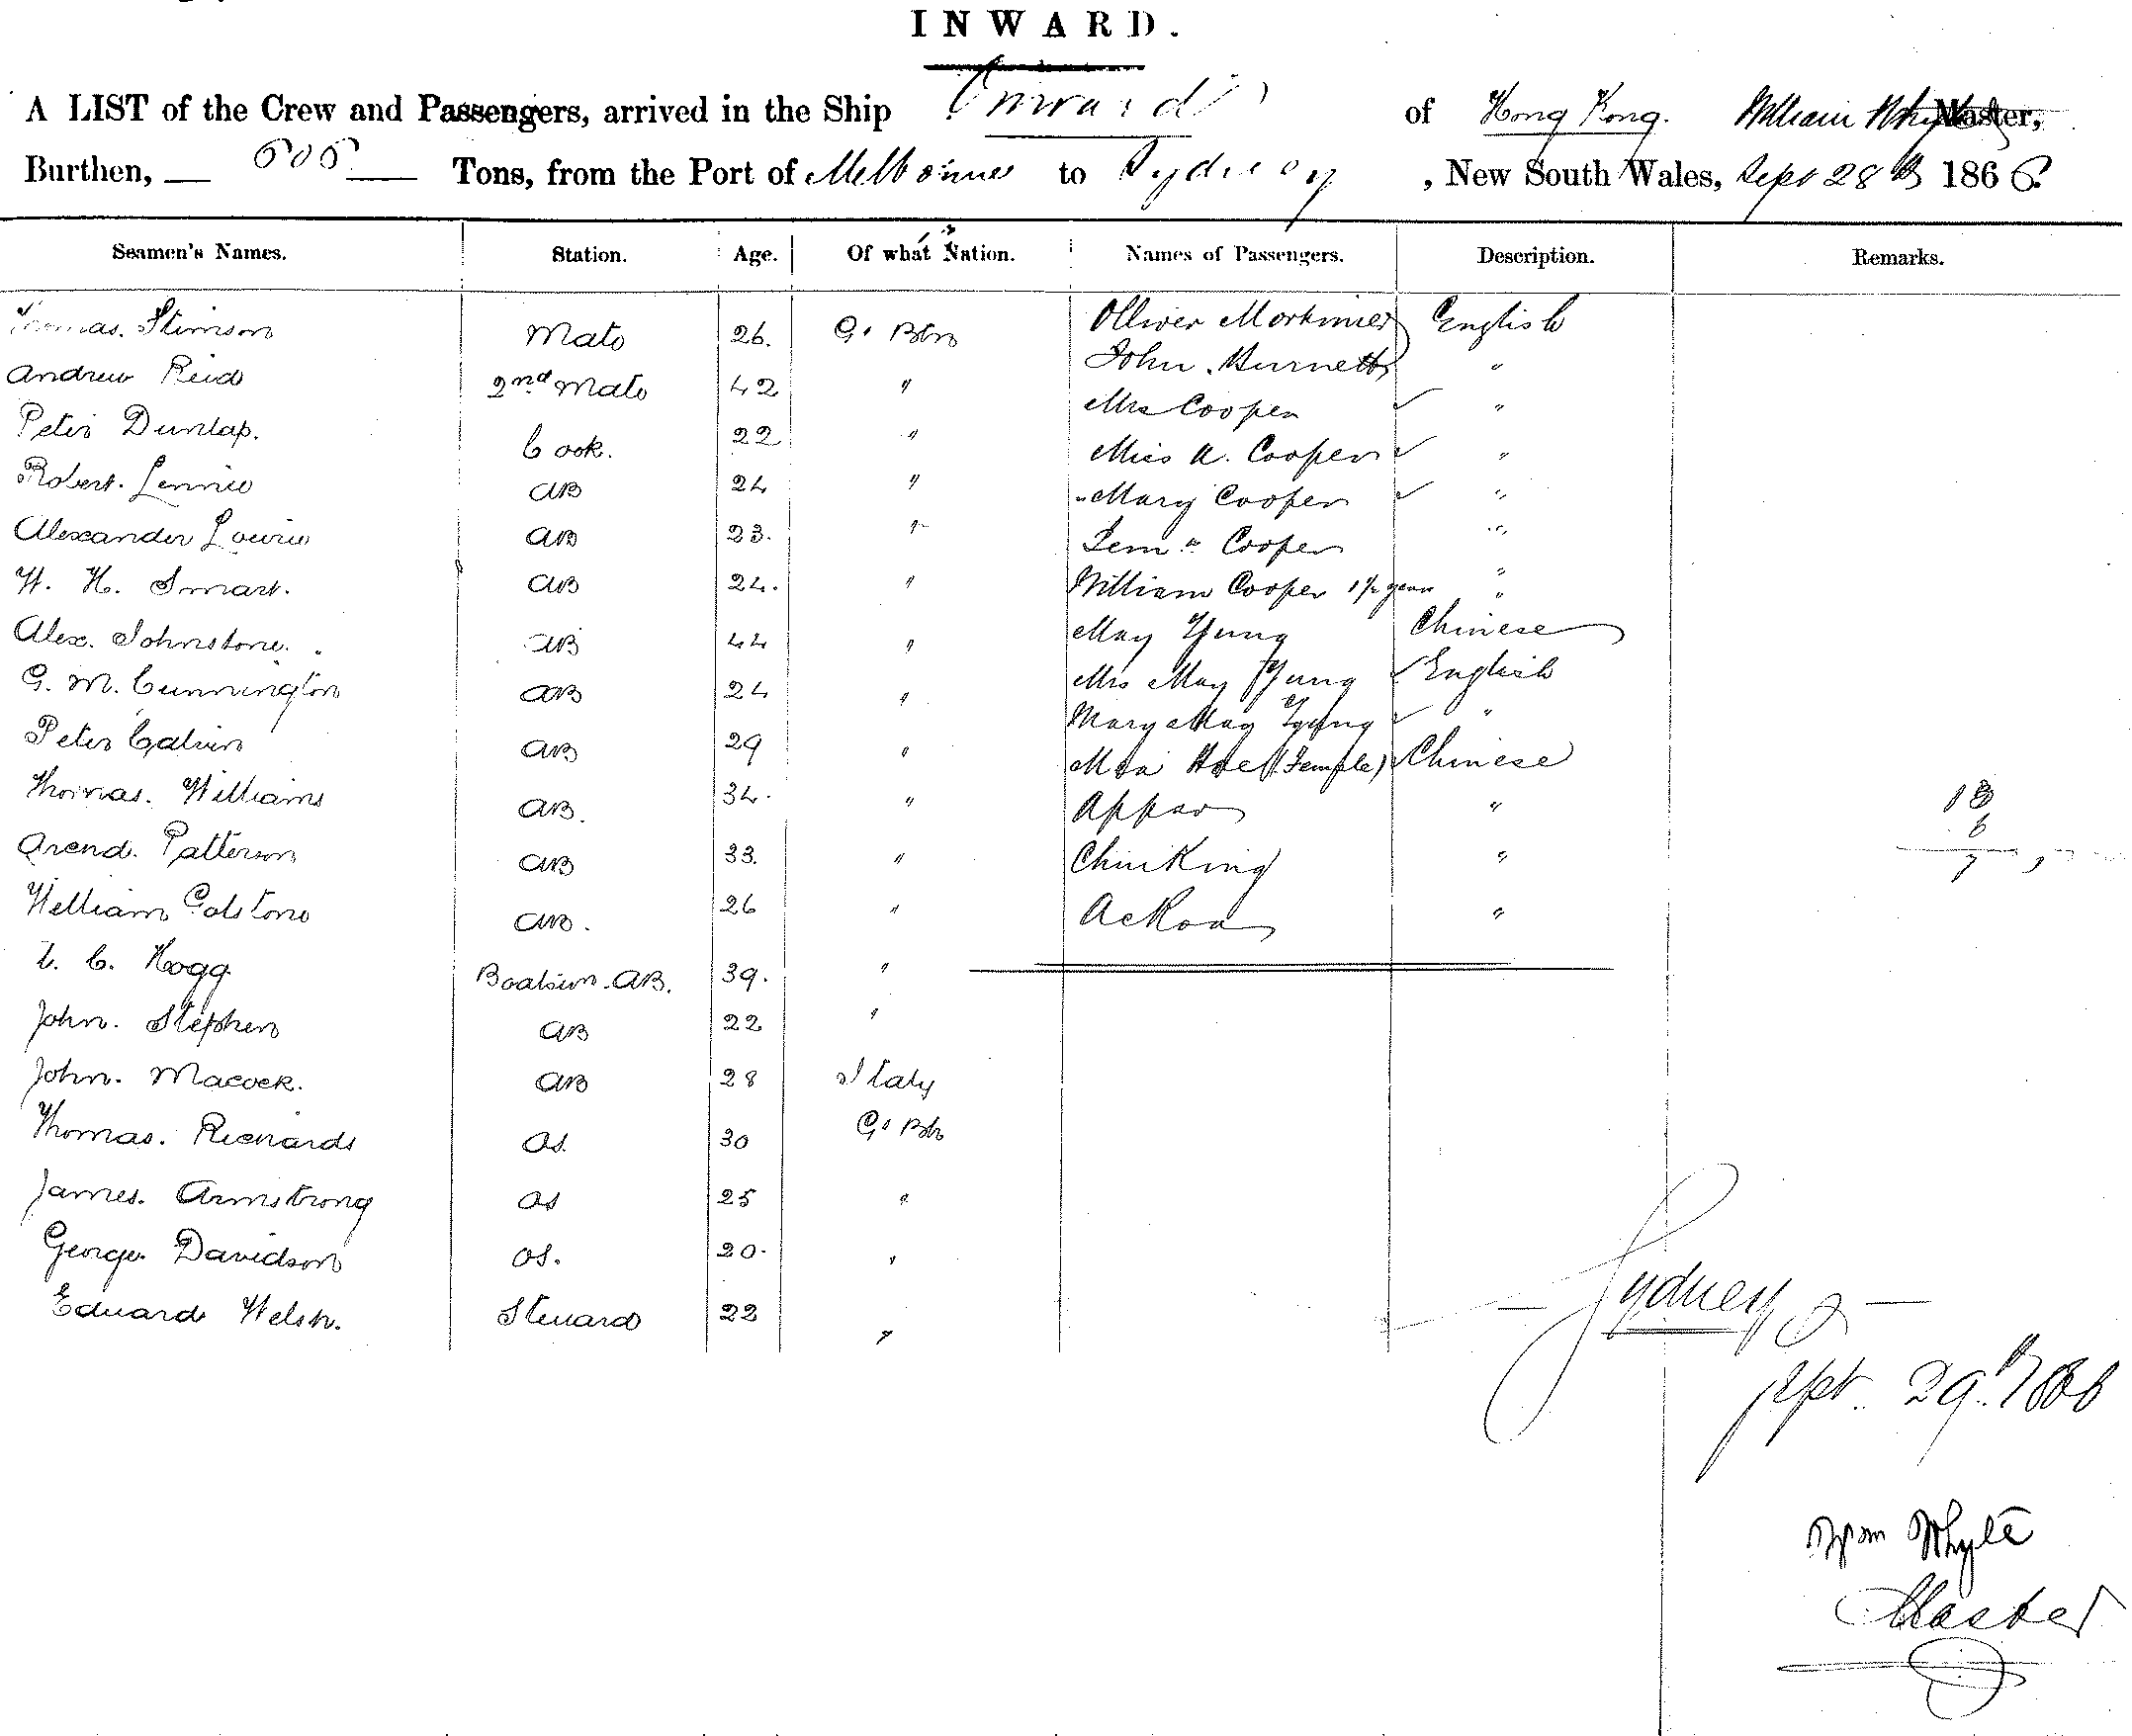 INWARD.
A LIST of the Crew and Passengers, arrived in the Ship Onward of Hong Kong. William Whyte Master,
Burthen, Tons, from the Port of Melbourne to Sydney, New South Wales, Sept 28th 1866.
Seamen's Names. Station. Age. Of what Nation. Names of Passengers. Description. Remarks.
Thomas. Stimson Mate 26. Gt Btn Olliver Mortimer English
Andrew Reid 2nd Mate 42 " John. Burnett "
Peter Dunlap. Cook. 22 " Mrs Cooper "
Robert. Lennie AB 24 " Miss A. Cooper "
Alexander Lowrie AB 23. " " Mary Cooper "
W. H. Smart. AB 24. " Cooper "
Alex. Johnstone. AB 44 " William Cooper 1½ years "
G. M. Cunnington AB 24 " May Yung Chinese
Peter AB 29 " Mrs May Yung English
Thomas. Williams AB. 34. " Mary May Yung "
Arend. Patterson AB 33. " Chinese
William Golstone AB. 26 " Appar "
Hogg Boatswn. AB. 39. " Chin King "
John. Stephen AB 22 " Ackoa "
John. Macock. AB 28 Italy
Thomas. Richards OS. 30 Gt Btn
James. Armstrong OS 25 "
George. Davidson OS. 20. "
Edward Welsh. Steward 22 "
13
6
7
Sydney
Sept. 29th 1866
Wm Whyte
Master